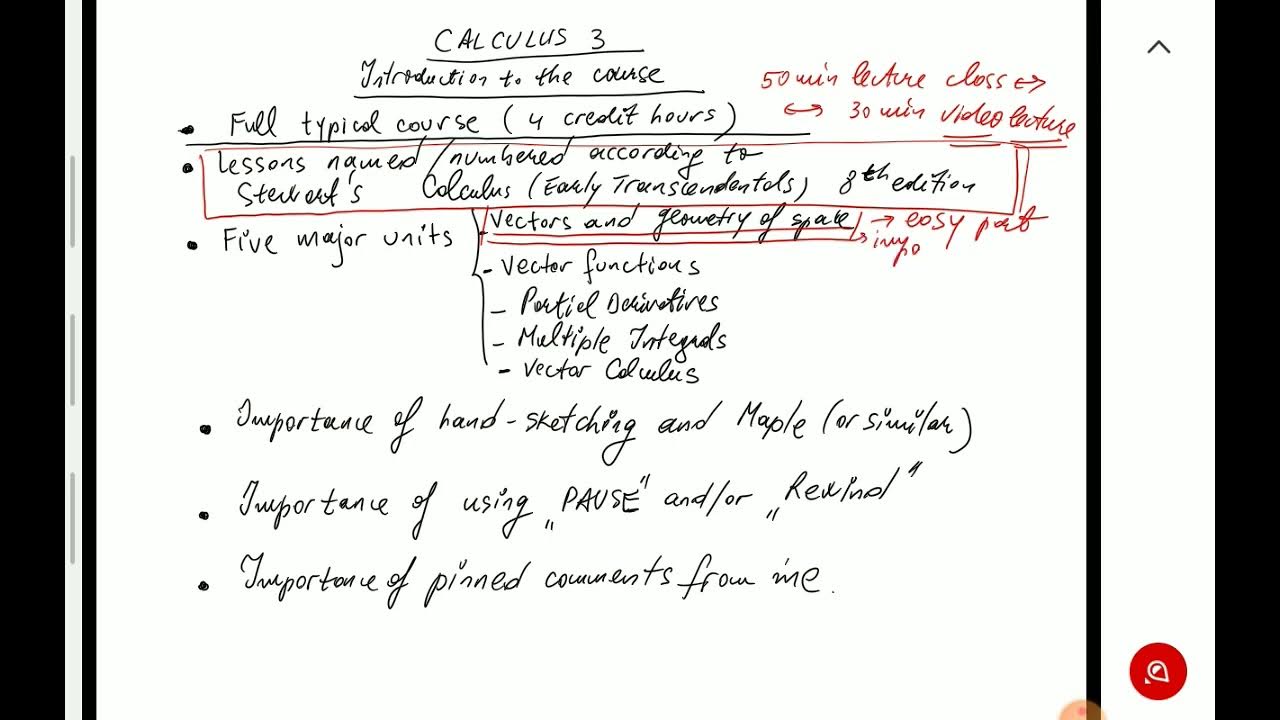 CALCULUS 3
Introduction to the course
50 min lecture class ↔
↔ 30 min video lecture
• Full typical course (4 credit hours)
• Lessons named/numbered according to
Stewart's Calculus (Early Transcendentals) 8th edition
• Five major units - Vectors and geometry of space → easy part
→ impo
- Vector functions
- Partial Derivatives
- Multiple Integrals
- Vector Calculus
• Importance of hand-sketching and Maple (or similar)
• Importance of using „PAUSE" and/or „Rewind"
• Importance of pinned comments from me.